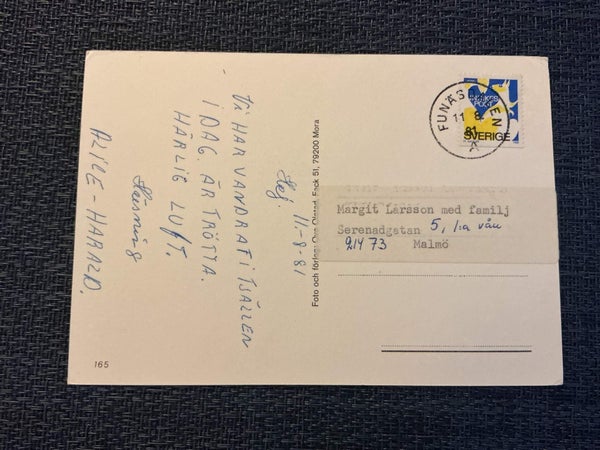 Hej. 11-8-81
Vi HAR VANDRAT i FJÄLLEN
I DAG. ÄR TRÖTTA.
HÄRLIG LUFT.
Hälsning
ALICE-HARALD.
165
Foto och förlag: Ove Olstad, Fack 51, 79200 Mora
FUNÄS EN
11 8
81
SVERIGE
Margit Larsson med familj
Serenadgatan 5, 1:a vån
214 73 Malmö